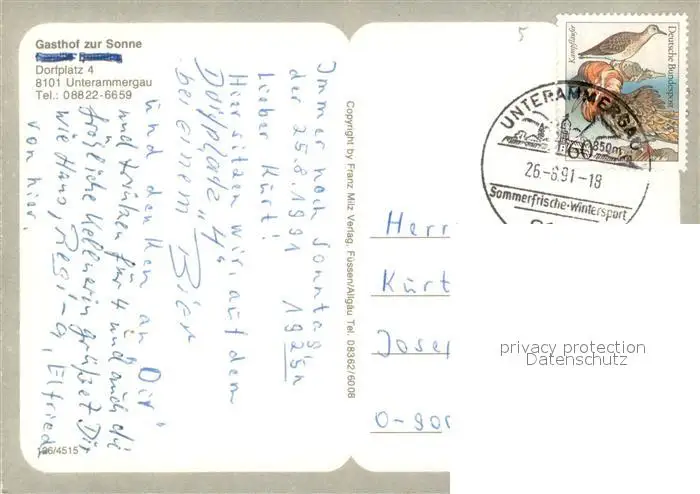 Gasthof zur Sonne
Dorfplatz 4
8101 Unterammergau
Tel.: 08822-6659
Immer noch Sonntag, n
der 25.8.1991 1925h
Lieber Kurt!
Hier sitzen wir, auf dem
"Dorfplatz 4"
bei einem Bier
und denken an Dir
und trinken für 4 und auch die
fröhliche Kellnerin grüßet Dir
wie Hans, Regi-G, Elfried,
von hier.
126/4515
Copyright by Franz Milz Verlag, Füssen/Allgäu Tel. 08362/6008
5
Kampfläufer
Deutsche Bundespost
60
UNTERAMMERGAU
850m
26.-8.91-18
Sommerfrische-Wintersport
Herr
Kurt
Josep
O-gor
privacy protection
Datenschutz